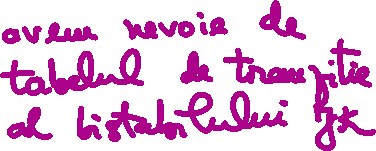 avem nevoie de
tabelul de tranzitie
al bistabilului JK